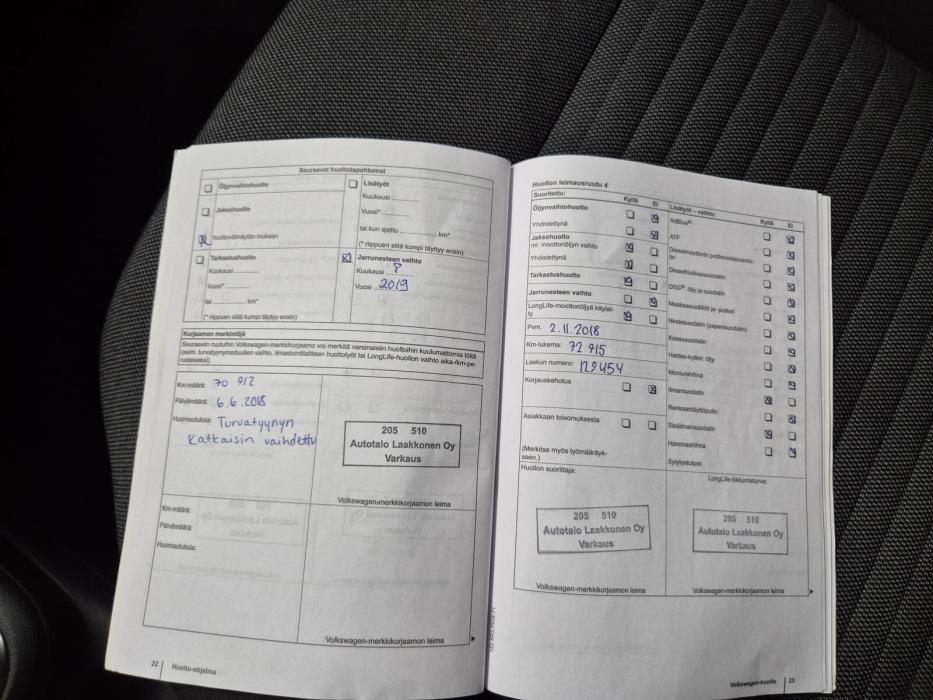 Seuraavat huoltotapahtumat
Öljynvaihtohuolto
Jaksohuolto
huoltovälinäytön mukaan
Tarkastushuolto
Kuukausi
Vuosi*
tai km*
(* riippuen siitä kumpi täyttyy ensin)
Lisätyöt
Kuukausi
Vuosi*
tai kun ajettu km*
(* riippuen siitä kumpi täyttyy ensin)
Jarrunesteen vaihto
Kuukausi 8
Vuosi 2019
Korjaamon merkintöjä
Seuraaviin ruutuihin Volkswagen-merkkikorjaamo voi merkitä varsinaisiin huoltoihin kuulumattomia töitä
(esim. turvatyynymoduulien vaihto, ilmastointilaitteen huoltotyöt tai LongLife-huollon vaihto aika-/km-pe-
rusteiseksi)
Km-määrä: 70 912
Päivämäärä: 6.6.2018
Huomautuksia: Turvatyynyn
Katkaisin vaihdettu
205 510
Autotalo Laakkonen Oy
Varkaus
Volkswagen-merkkikorjaamon leima
Km-määrä:
Päivämäärä:
Huomautuksia:
Volkswagen-merkkikorjaamon leima
22 Huolto-ohjelma
Huollon leimausruutu 4
Suoritettu: Kyllä Ei
Öljynvaihtohuolto
Yhdistettynä
Jaksohuolto
ml. moottoriöljyn vaihto
Yhdistettynä
Tarkastushuolto
Jarrunesteen vaihto
LongLife-moottoriöljyä käytet-
ty
Pvm. 2.11.2018
Km-lukema: 72 715
Laskun numero: 129454
Korjauskehotus
Asiakkaan toivomuksesta
(Merkitse myös työmääräyk-
seen.)
Huollon suorittaja:
205 510
Autotalo Laakkonen Oy
Varkaus
Volkswagen-merkkikorjaamon leima
Lisätyöt – vaihto: Kyllä Ei
AdBlue®
ATF
Dieselmoottorin polttoainesuoda-
tin
Dieselhiukkassuodatin
DSG® öljy ja suodatin
Maakaasusäiliöt ja -putket
Nestesuodatin (paperisuodatin)
Kaasusuodatin
Haldex-kytkin: öljy
Moniurahihna
Ilmansuodatin
Renkaantäyttöpullo
Sisäilmansuodatin
Hammashihna
Sytytystulpat
LongLife-liikkumisturva:
205 510
Autotalo Laakkonen Oy
Varkaus
Volkswagen-merkkikorjaamon leima
Volkswagen-huolto 23